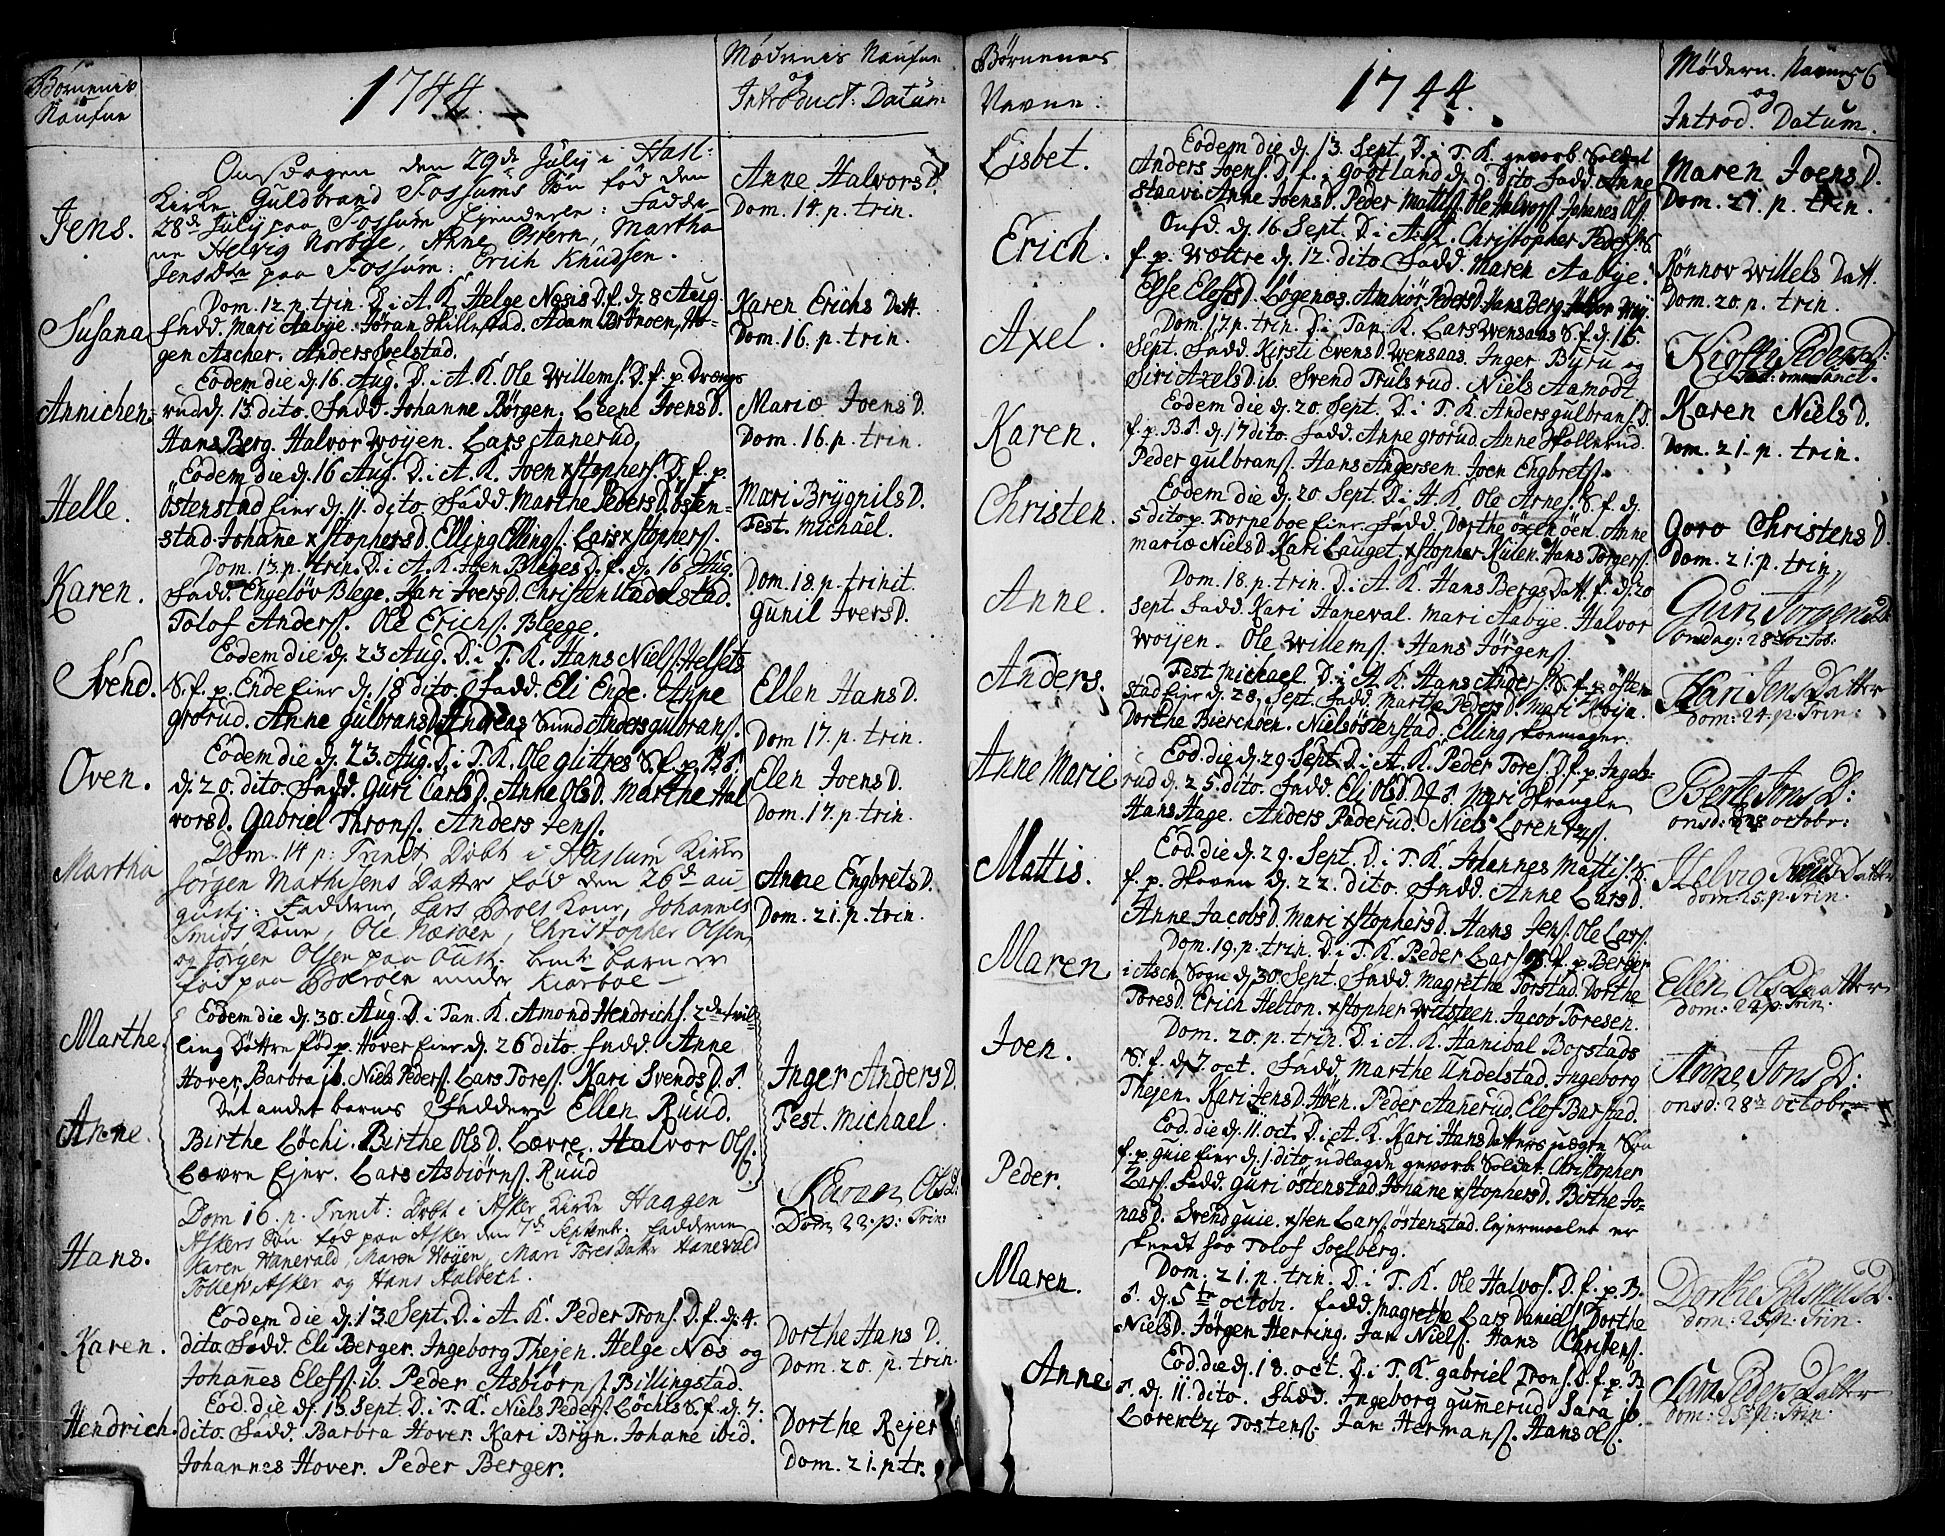 Børnenis
Naufne
1744.
Mødrenis Naufne
og
Introduct: Datum
Onsdagen den 29de July i Hasl:
Kirke Guldbrand Fossums Søn fød den
28de July paa Fossum Ejendeele: Fadde-
Jens.
ne Helvig Norbye, Anne Ostern, Martha
Jensdtr paa Fossum: Erich Knudsen.
Anne Halvors D.
Dom. 14. p. trin.
Dom. 12. p. trin. D. i A. K. Helge Nesis D. f. d. 8 Aug.
Susana
Fadd. Mari Aabye. Jøran Skillestad. Adam Brønøen, Ha-
gen Ascher. Anders Soelstad.
Karen Erichs Datt.
Dom. 16. p. trin.
Eodem die d. 16 Aug. D. i A. K. Ole Willems. D. f. p. Drengs
Annichen
rud d. 13. dito. Fadd. Johanne Børgen. Leene Joens D.
Hans Berg. Halvor Woyen. Lars Aanerud.
Mariæ Joens D.
Dom. 16. p. trin.
Eodem die d. 16 Aug. D. i A. K. Joen xstophers. D. f. p.
Helle.
Östenstad Eier d. 11. dito. Fadd. Marthe Peders D. Östen-
stad. Johanne xstophers D. Elling Ellings. Lars xstophers.
Mari Brÿgnils D.
Fest. Michael.
Dom. 13. p. trin. D. i A. K. Joen Bleges D. f. d. 16 Aug.
Karen.
Fadd. Engeløv Blege. Kari Ivers D. Christen Kadelstad.
Tolof Anders. Ole Erichs. Bleege.
Dom. 18. p. trinit.
Gunil Ivers D.
Eodem die d. 23 Aug. D. i T. K. Hans Niels. Helsets
Svend.
S. f. p. Ende Eier d. 18 dito. Fadd. Eli Ende. Anne
Grorud. Anne Gulbrans D. Andreas Smid Anders Gulbrans.
Ellen Hans D.
Dom 17. p. trin.
Eodem die d. 23. Aug. D. i T. K. Ole Glittres S. f. p. B
Oven.
d. 20. dito. Fadd. Guri Carls D. Anne Ols D. Marthe Hal
vors D. Gabriel Throns. Anders Jens.
Elen Joens D.
Dom. 17. p. trin.
Dom. 14 p: Trinit. Døbt i Haslum Kirke
Martha
Jørgen Mathisens Datter fød den 26de au
gustj: Fadderne, Lars Kone, Johannes
Smids Kone, Ole Nærsen, Christopher Olsen,
og Jørgen Olsen paa bemte barn er
fød paa under Kiørboe
Anne Engbrets D.
Dom. 21. p. trin.
Eodem die d. 30. Aug. D. i Tan. K. Amond Hendrichs. 2de tvil
Marthe.
ling Døttre fød p. Hover Eier d. 26 dito. Fadd. Anne
Hover. Barbra ib. Niels Peders. Lars Tores. Kari Svends D.
Det andet barnes Faddere Ellen Ruud.
Anne.
Birthe Løchi. Birthe Ols D. Lævre. Halvor Ols.
Lævre Ejer. Lars Asbiørns. Ruud
Inger Anders D.
Fest Michael.
Dom 16. p. Trinit: Døbt i Asker Kirke Haagen
Askers Søn fød paa Asker den 7de Septembr. Fadderne
Hans.
Karen Hanevald, Maren Woyen, Mari Tores Datter Hanevald
Tollev Asker og Hans Aalbech.
Karen Ols D.
Dom 22. p: Trin:
Eodem die d. 13. Sept. D. i A. K. Peder Trons. D. f. d. 4.
Karen.
dito. Fadd. Eli Berger. Ingeborg Thejen. Helge Næs og
Johannes Elefs. ib. Peder Asbiørns. Billingstad.
Dorthe Hans D.
Dom. 20. p. trin.
Eod. die d. 13 Sept. D. i T. K. Niels Peders. Løchis S. f. d. 7.
Hendrich.
dito. Fadd. Barbra Hover. Kari Bryn. Johane ibid.
Johannes Hover. Peder Berger.
Dorthe Rejer
Dom. 21. p. tr.
Børnenes
Nevne:
1744.
Mødern. Navne 56
og
Introd. Datum.
Eodem die d. 13. Sept. D. i T. K. gevorb. Soldat
Lisbet.
Anders Joens D. f. i Godtland d. 9. dito. Fadd. Anne
Staavi. Anne Joens D. Peder Mattis. Ole Halvors. Johanes Ols.
Maren Joens D.
Dom. 21. p. trin.
Onsd. d. 16 Sept. D. i A. K. Christopher Peders. S.
Erich.
f. p. Wættre d. 12. dito. Fadd. Maren Aabye.
Else Elefs D. Løgenæs. Anbiør Peders D. Hans Berg. Halvor Woy
Rønnov Willels Datt.
Dom. 20. p. trin.
Dom. 17. p. trin. D. i Tan. K. Lars Wensaas S. f. d. 15.
Axel.
Sept. Fadd. Kirsti Evens D. Wensaas. Inger Byru og
Siri Axels D. ib. Svend Trulsrud. Niels Aamodt
Kiesti Peders D:
Eodem die d. 20. Sept. D. i T. K. Anders Gulbrans D.
Karen.
f. p. B. d. 17 dito. Fadd. Anne Grorud. Anne Skollerud.
Peder Gulbrans. Hans Andersen. Joen Engbrets.
Karen Niels D.
Dom. 21. p. trin.
Eodem die d. 20 Sept. D. i A. K. Ole Arnes. S. f. d.
Christen.
5 dito p. Torpeboe Eier. Fadd. Dorthe Öxenöen. Anne
Mariæ Niels D. Kari Lauget. xstopher Kulen. Hans Torgers.
Goro Christens D.
Dom. 21. p. trin.
Dom. 18. p. trin. D. i A. K. Hans Bergs Datt. f. d. 20
Anne.
Sept. Fadd. Kari Haneval. Mari Aabye. Halvor
Woijen. Ole Willems. Hans Jörgens.
Guri Jørgens D:
onsdag: 28 octo.
Fest Michael. D. i A. K. Hans Anders. S. f. p. Östen-
Anders.
stad Eier d. 28. Sept. Fadd. Marthe Peders D. Mari Woije.
Dorthe Bierchöen. Niels Östenstad. Elling Skomager.
Kari Jens Datter
dom: 24. p. Trin:
Eod. die d. 29. Sept. D. i A. K. Peder Tores D. f. p. Ingels-
Anne Marie
rud d. 25. dito. Fadd. Eli Ols D. Mari Skrangle
Hans Hage. Anders Paderud. Niels Lorentzs.
Berte Jons D:
onsd: 28 octobr:
Eod. die d. 29. Sept. D. i T. K. Johannes Mattis. S.
Mattis.
f. p. Skoven d. 22. dito. Fadd. Anne Lars D.
Anne Jacobs D. Mari xstophers D. Hans Jens. Ole Lars.
Helvig Datter
dom: 25. p. Trin.
Dom. 19. p. trin. D. i T. K. Peder Lars. D. f. p. Berger
Maren
i Asch. Sogn d. 30. Sept. Fadd. Magrethe Torstad. Dorthe
Tores D. Erich Helton. xstopher Witsteen. Jacob Toresen.
Ellen Ols Daatter
dom: 22 p. Trin.
Dom. 20. p. trin. D. i A. K. Hanibal Borstads
Joen.
S. f. d. 7. oct. Fadd. Marthe Undelstad. Ingeborg
Thejen. Kari Jens D. Höen. Peder Aanerud. Elef Burstad.
Anne Jons D:
onsd: 28de octobr
Eod. die d. 11. oct. D. i A. K. Kari Hans Datters uægte Søn
Peder.
f. p. Guie Eier d. 1. dito udlagde gevorb. Soldat Christopher
Lars. Fadd. Guri Östenstad. Johane xstophers D. Birthe Jo-
nas D. Svend Guie. xsten Lars. Östenstad. lejermaalet er
skeedt hos Tolof Soelberg.
Dom. 21. p. trin. D. i T. K. Ole Halvors. D. f. p. B.
Maren.
d. 5te octobr. Fadd. Magrethe Lars Daniels. Dorthe
Niels D. Jørgen Herring. Jan Niels. Hans Christens.
Dorthe Rasmus D.
dom: 25 p. Trin.
Eod. die d. 18. oct. D. i T. K. Gabriel Trons. D. f. p. B
Anne.
d. 11. dito. Fadd. Ingeborg Gummerud. Sara ib.
Lorentz Tostens. Jan Hermans. Hans Ols.
Sara Peders Datter
dom: 25 p: Trin.